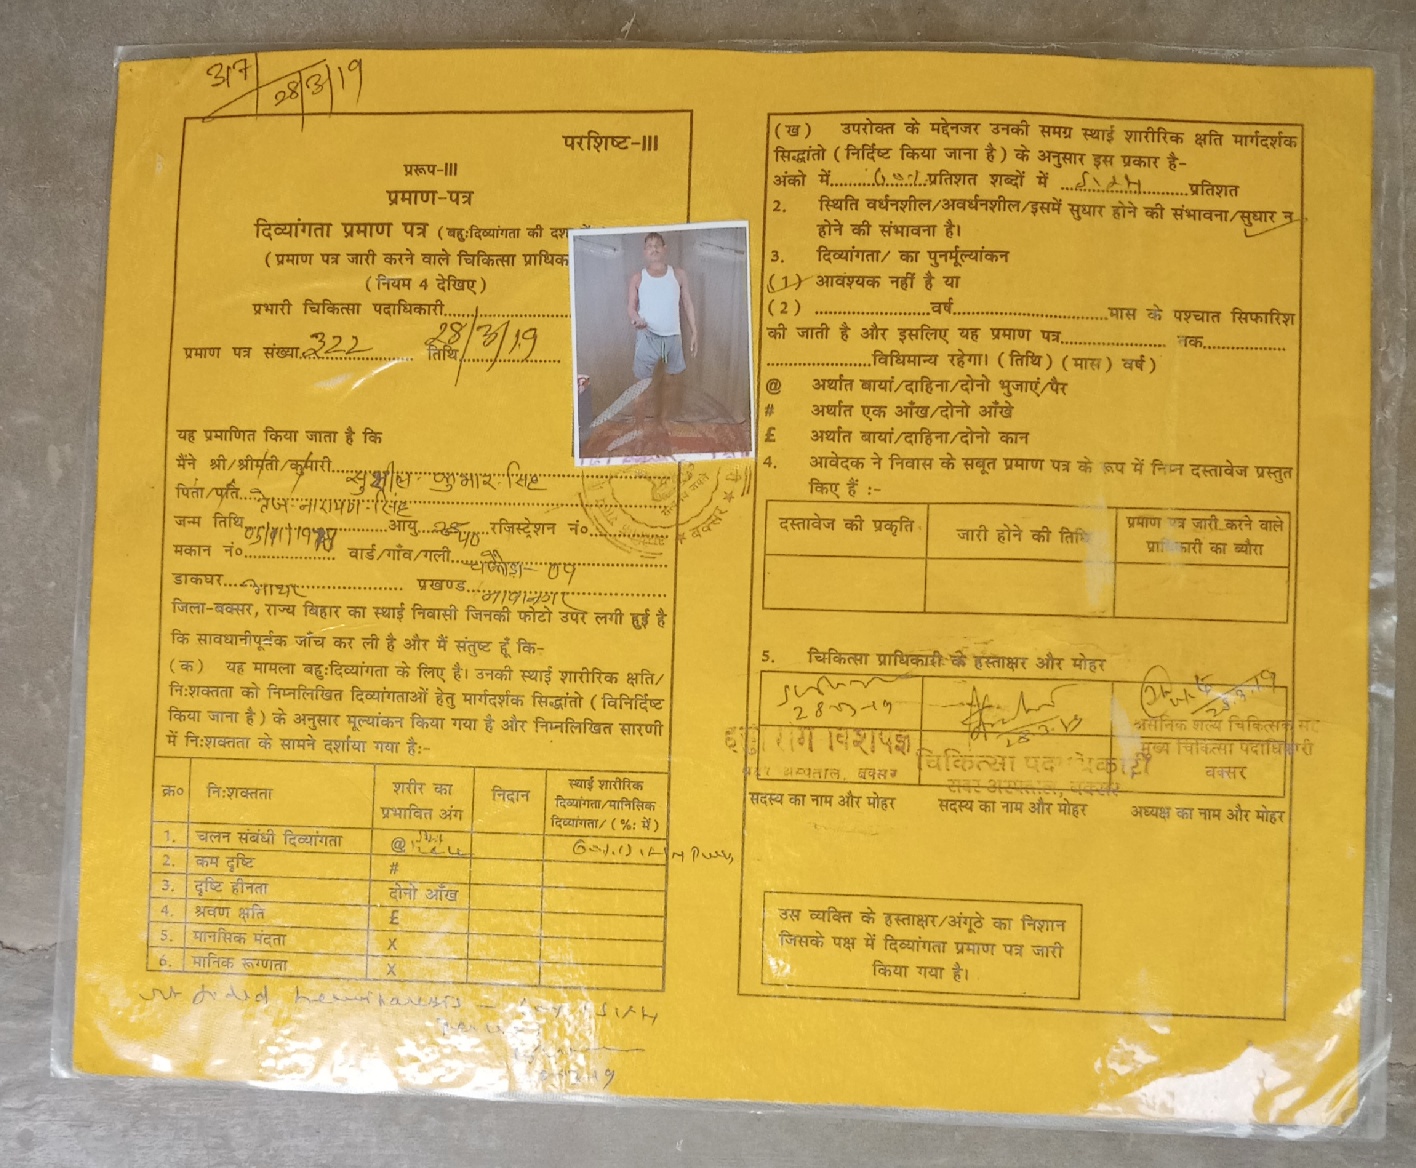 317
28/3/19
परशिष्ट-III
प्ररूप-III
प्रमाण-पत्र
दिव्यांगता प्रमाण पत्र (बहु:दिव्यांगता की दश
(प्रमाण पत्र जारी करने वाले चिकित्सा प्राधिक
(नियम 4 देखिए)
प्रभारी चिकित्सा पदाधिकारी
प्रमाण पत्र संख्या 322 तिथि 28/3/19
यह प्रमाणित किया जाता है कि
मैंने श्री/श्रीमती/कुमारी सुशील कुमार सिंह
पिता/पति तेज नारायण सिंह
जन्म तिथि आयु रजिस्ट्रेशन नं०
मकान नं० वार्ड/गाँव/गली
डाकघर प्रखण्ड
जिला-बक्सर, राज्य बिहार का स्थाई निवासी जिनकी फोटो उपर लगी हुई है
कि सावधानीपूर्वक जाँच कर ली है और मैं संतुष्ट हूँ कि-
(क) यह मामला बहु:दिव्यांगता के लिए है। उनकी स्थाई शारीरिक क्षति/
नि:शक्तता को निम्नलिखित दिव्यांगताओं हेतु मार्गदर्शक सिद्धांतो (विनिर्दिष्ट
किया जाना है) के अनुसार मूल्यांकन किया गया है और निम्नलिखित सारणी
में नि:शक्तता के सामने दर्शाया गया है:-
क्र० नि:शक्तता शरीर का प्रभावित अंग निदान स्थाई शारीरिक दिव्यांगता/मानिसिक दिव्यांगता/(%: में)
1. चलन संबंधी दिव्यांगता @
2. कम दृष्टि #
3. दृष्टि हीनता दोनो आँख
4. श्रवण क्षति £
5. मानसिक मंदता X
6. मानिक रूग्णता X
(ख) उपरोक्त के मद्देनजर उनकी समग्र स्थाई शारीरिक क्षति मार्गदर्शक
सिद्धांतो (निर्दिष्ट किया जाना है) के अनुसार इस प्रकार है-
अंको में प्रतिशत शब्दों में प्रतिशत
2. स्थिति वर्धनशील/अवर्धनशील/इसमें सुधार होने की संभावना/सुधार न
होने की संभावना है।
3. दिव्यांगता/ का पुनर्मूल्यांकन
(1) आवंश्यक नहीं है या
(2) वर्ष मास के पश्चात सिफारिश
की जाती है और इसलिए यह प्रमाण पत्र तक
विधिमान्य रहेगा। (तिथि) (मास) वर्ष)
@ अर्थात बायां/दाहिना/दोनो भुजाएं/पैर
# अर्थात एक आँख/दोनो आँखे
£ अर्थात बायां/दाहिना/दोनो कान
4. आवेदक ने निवास के सबूत प्रमाण पत्र के रूप में निम्न दस्तावेज प्रस्तुत
किए हैं :-
दस्तावेज की प्रकृति जारी होने की तिथि प्रमाण पत्र जारी करने वाले प्राधिकारी का ब्यौरा
5. चिकित्सा प्राधिकारी के हस्ताक्षर और मोहर
28-03-19
असैनिक शल्य चिकित्सक सह
मुख्य चिकित्सा पदाधिकारी
बक्सर
चिकित्सा पदाधिकारी
सदर अस्पताल, बक्सर
सदर अस्पताल, बक्सर
सदस्य का नाम और मोहर सदस्य का नाम और मोहर अध्यक्ष का नाम और मोहर
उस व्यक्ति के हस्ताक्षर/अंगूठे का निशान
जिसके पक्ष में दिव्यांगता प्रमाण पत्र जारी
किया गया है।